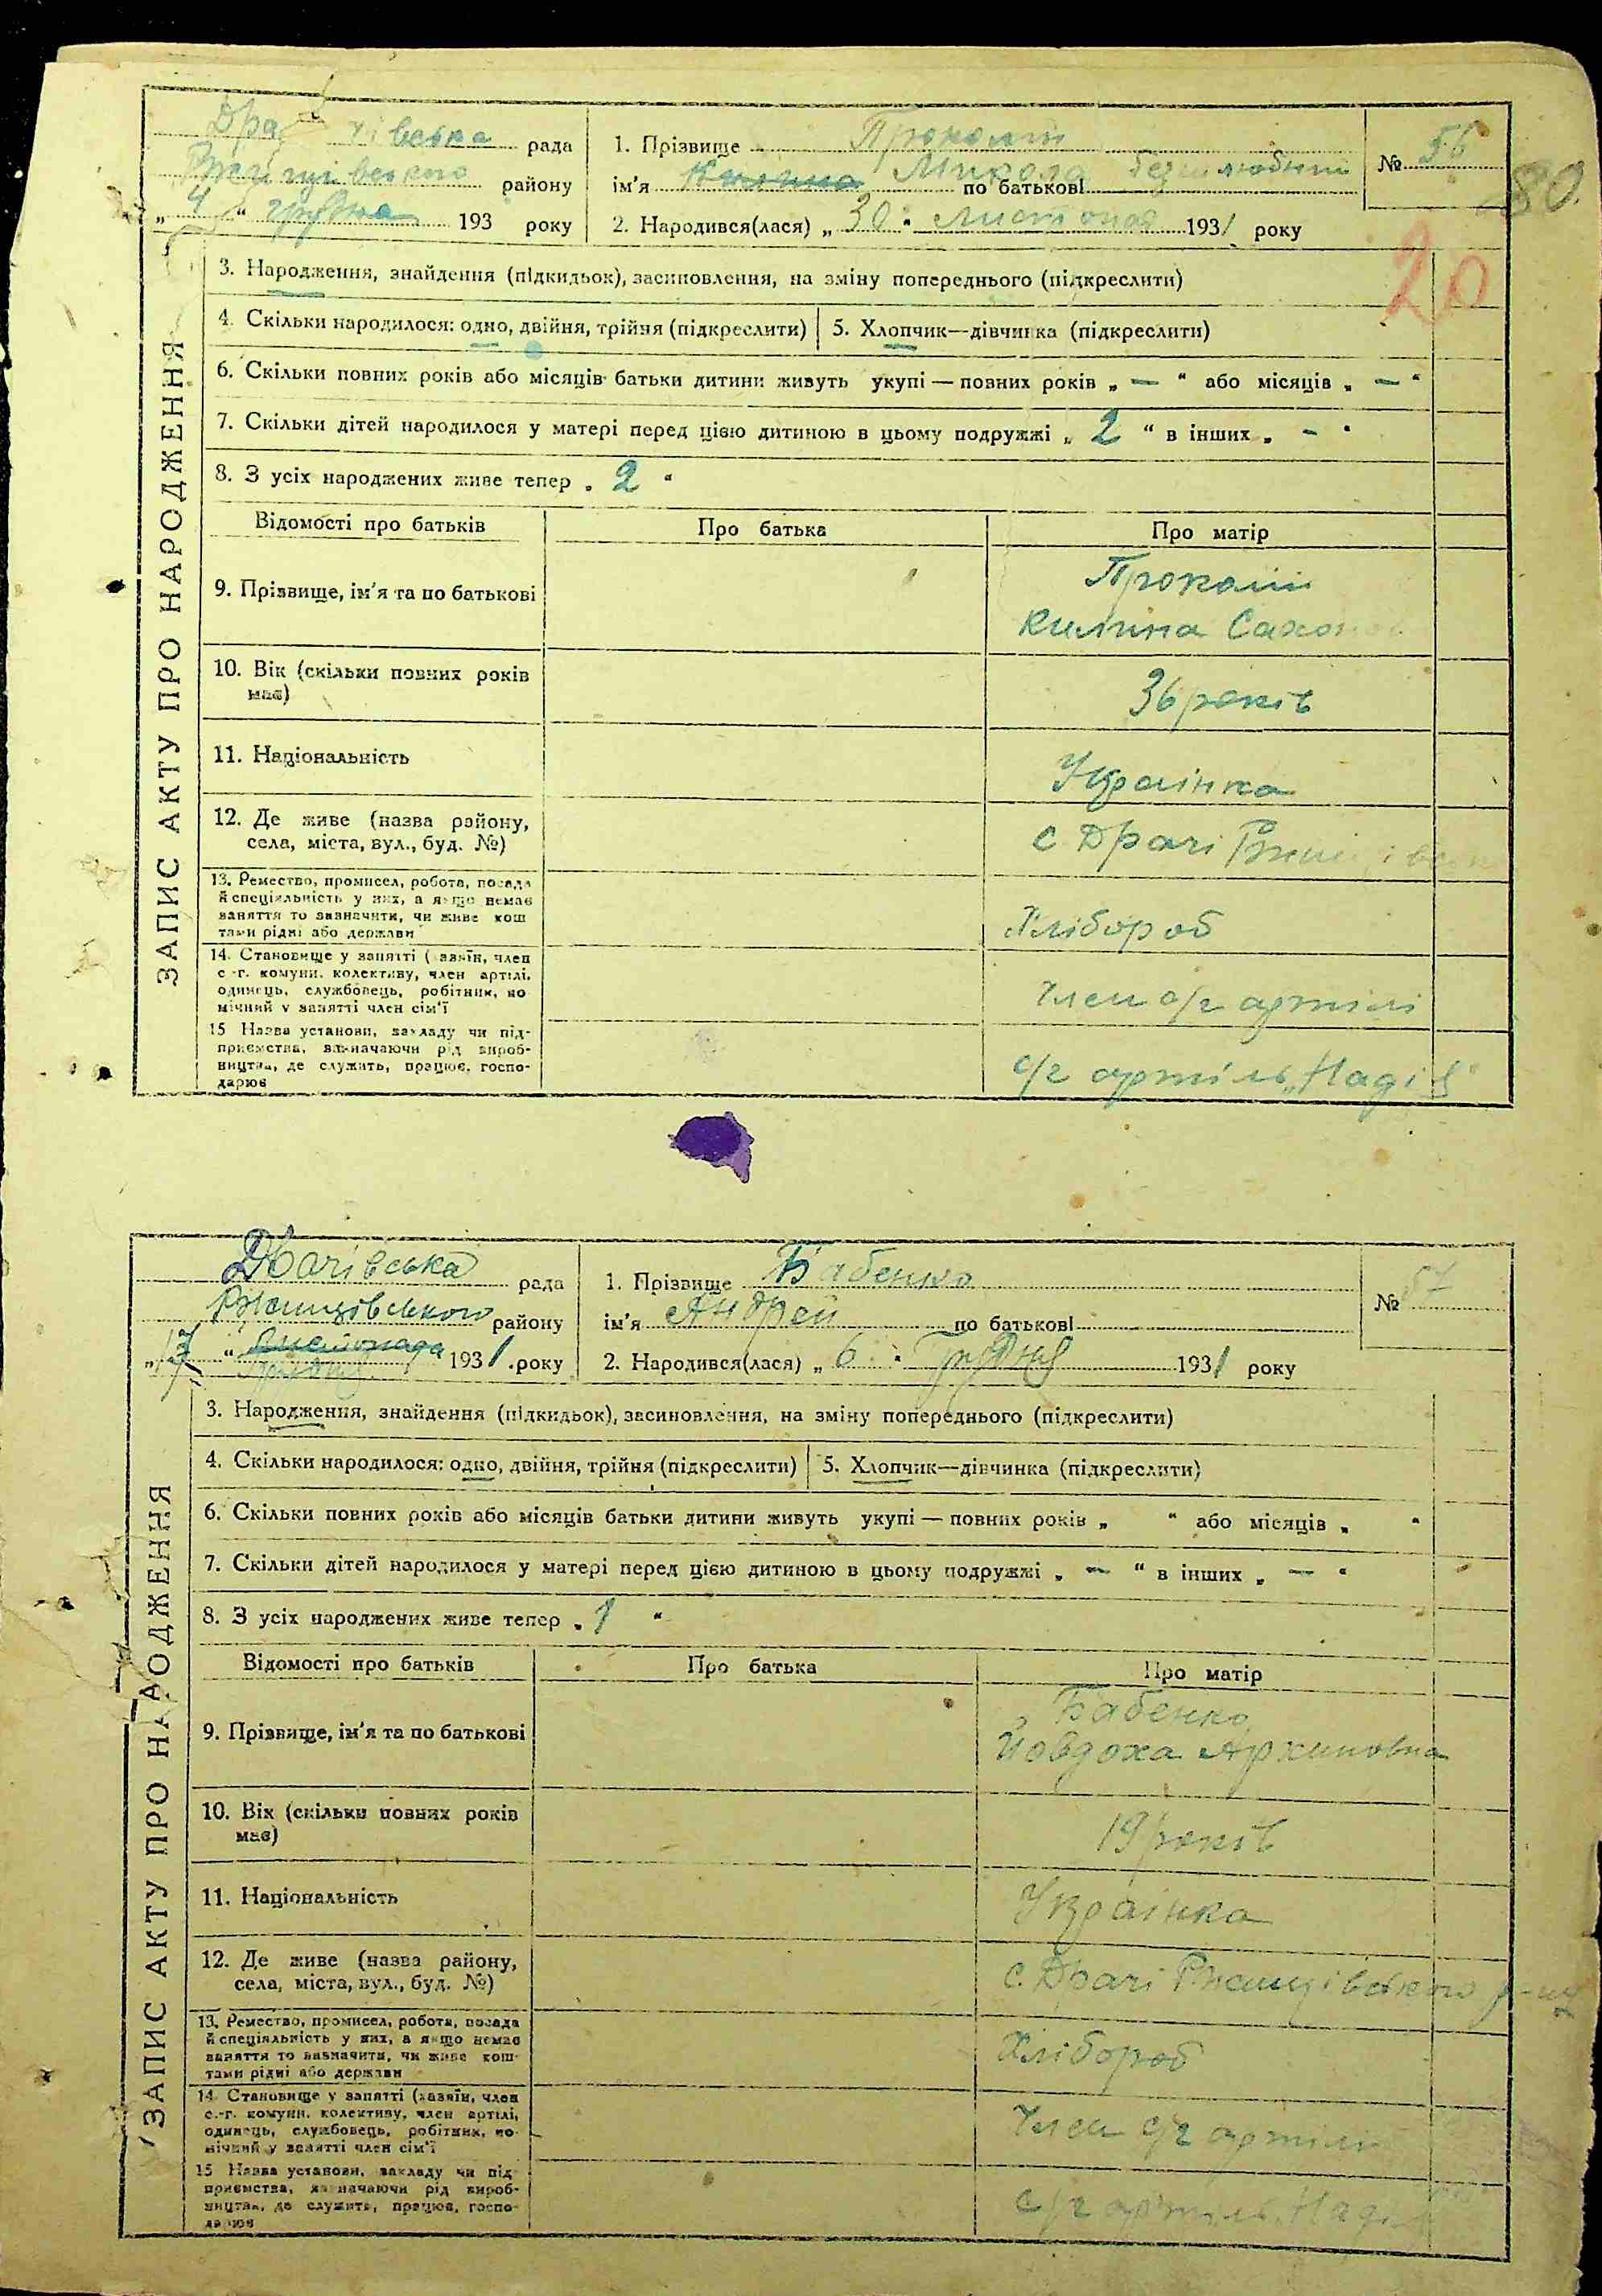 рада
Ржищівського району
„ 4 “ грудня 193 року
1. Прізвище
ім'я Килина Микола по батькові
2. Народився(лася) „ 30 “ листопада 1931 року
№ 56
80.
20
ЗАПИС АКТУ ПРО НАРОДЖЕННЯ
3. Народження, знайдення (підкидьок), засиновлення, на зміну попереднього (підкреслити)
4. Скільки народилося: одно, двійня, трійня (підкреслити)
5. Хлопчик—дівчинка (підкреслити)
6. Скільки повних років або місяців батьки дитини живуть укупі — повних років „ — “ або місяців „ — “
7. Скільки дітей народилося у матері перед цією дитиною в цьому подружжі „ 2 “ в інших „ - “
8. З усіх народжених живе тепер „ 2 “
Відомості про батьків
Про батька
Про матір
9. Прізвище, ім'я та по батькові
Килина
10. Вік (скільки повних років
має)
36 років
11. Національність
Українка
12. Де живе (назва району,
села, міста, вул., буд. №)
с Драчі
13. Ремество, промисел, робота, посада
й спеціяльність у них, а якщо немає
заняття то зазначити, чи живе кош
тами рідні або держави
Хлібороб
14. Становище у занятті (хазяїн, член
с.-г. комуни, колективу, член артілі,
одинець, службовець, робітник, по
мічний у занятті член сім'ї
член с/г артілі
15 Назва установи, закладу чи під-
приємства, зазначаючи рід вироб-
ництва, де служить, працює, госпо-
дарює
с/г артіль „Надія“
Драчівська рада
Ржищівського району
листопада 1931 року
грудня
1. Прізвище Бабенко
ім'я Андрей по батькові
2. Народився(лася) „ 6 “ Грудня 1931 року
№ 57
ЗАПИС АКТУ ПРО НАРОДЖЕННЯ
3. Народження, знайдення (підкидьок), засиновлення, на зміну попереднього (підкреслити)
4. Скільки народилося: одно, двійня, трійня (підкреслити)
5. Хлопчик—дівчинка (підкреслити)
6. Скільки повних років або місяців батьки дитини живуть укупі — повних років „ “ або місяців „ “
7. Скільки дітей народилося у матері перед цією дитиною в цьому подружжі „ — “ в інших „ — “
8. З усіх народжених живе тепер „ 1 “
Відомості про батьків
Про батька
Про матір
9. Прізвище, ім'я та по батькові
Бабенко
Йовдоха Архиповна
10. Вік (скільки повних років
має)
19 років
11. Національність
Українка
12. Де живе (назва району,
села, міста, вул., буд. №)
с. Драчі Ржищівського р-ну
13. Ремество, промисел, робота, посада
й спеціяльність у них, а якщо немає
заняття то зазначити, чи живе кош-
тами рідні або держави
Хлібороб
14 Становище у занятті (хазяїн, член
с.-г. комуни, колективу, член артілі,
одинець, службовець, робітник, по-
мічний у занятті член сім'ї
Член с/г артілі
15 Назва установи, закладу чи під
приємства, зазначаючи рід вироб-
ництва, де служить, працює, госпо-
дарює
с/г артіль